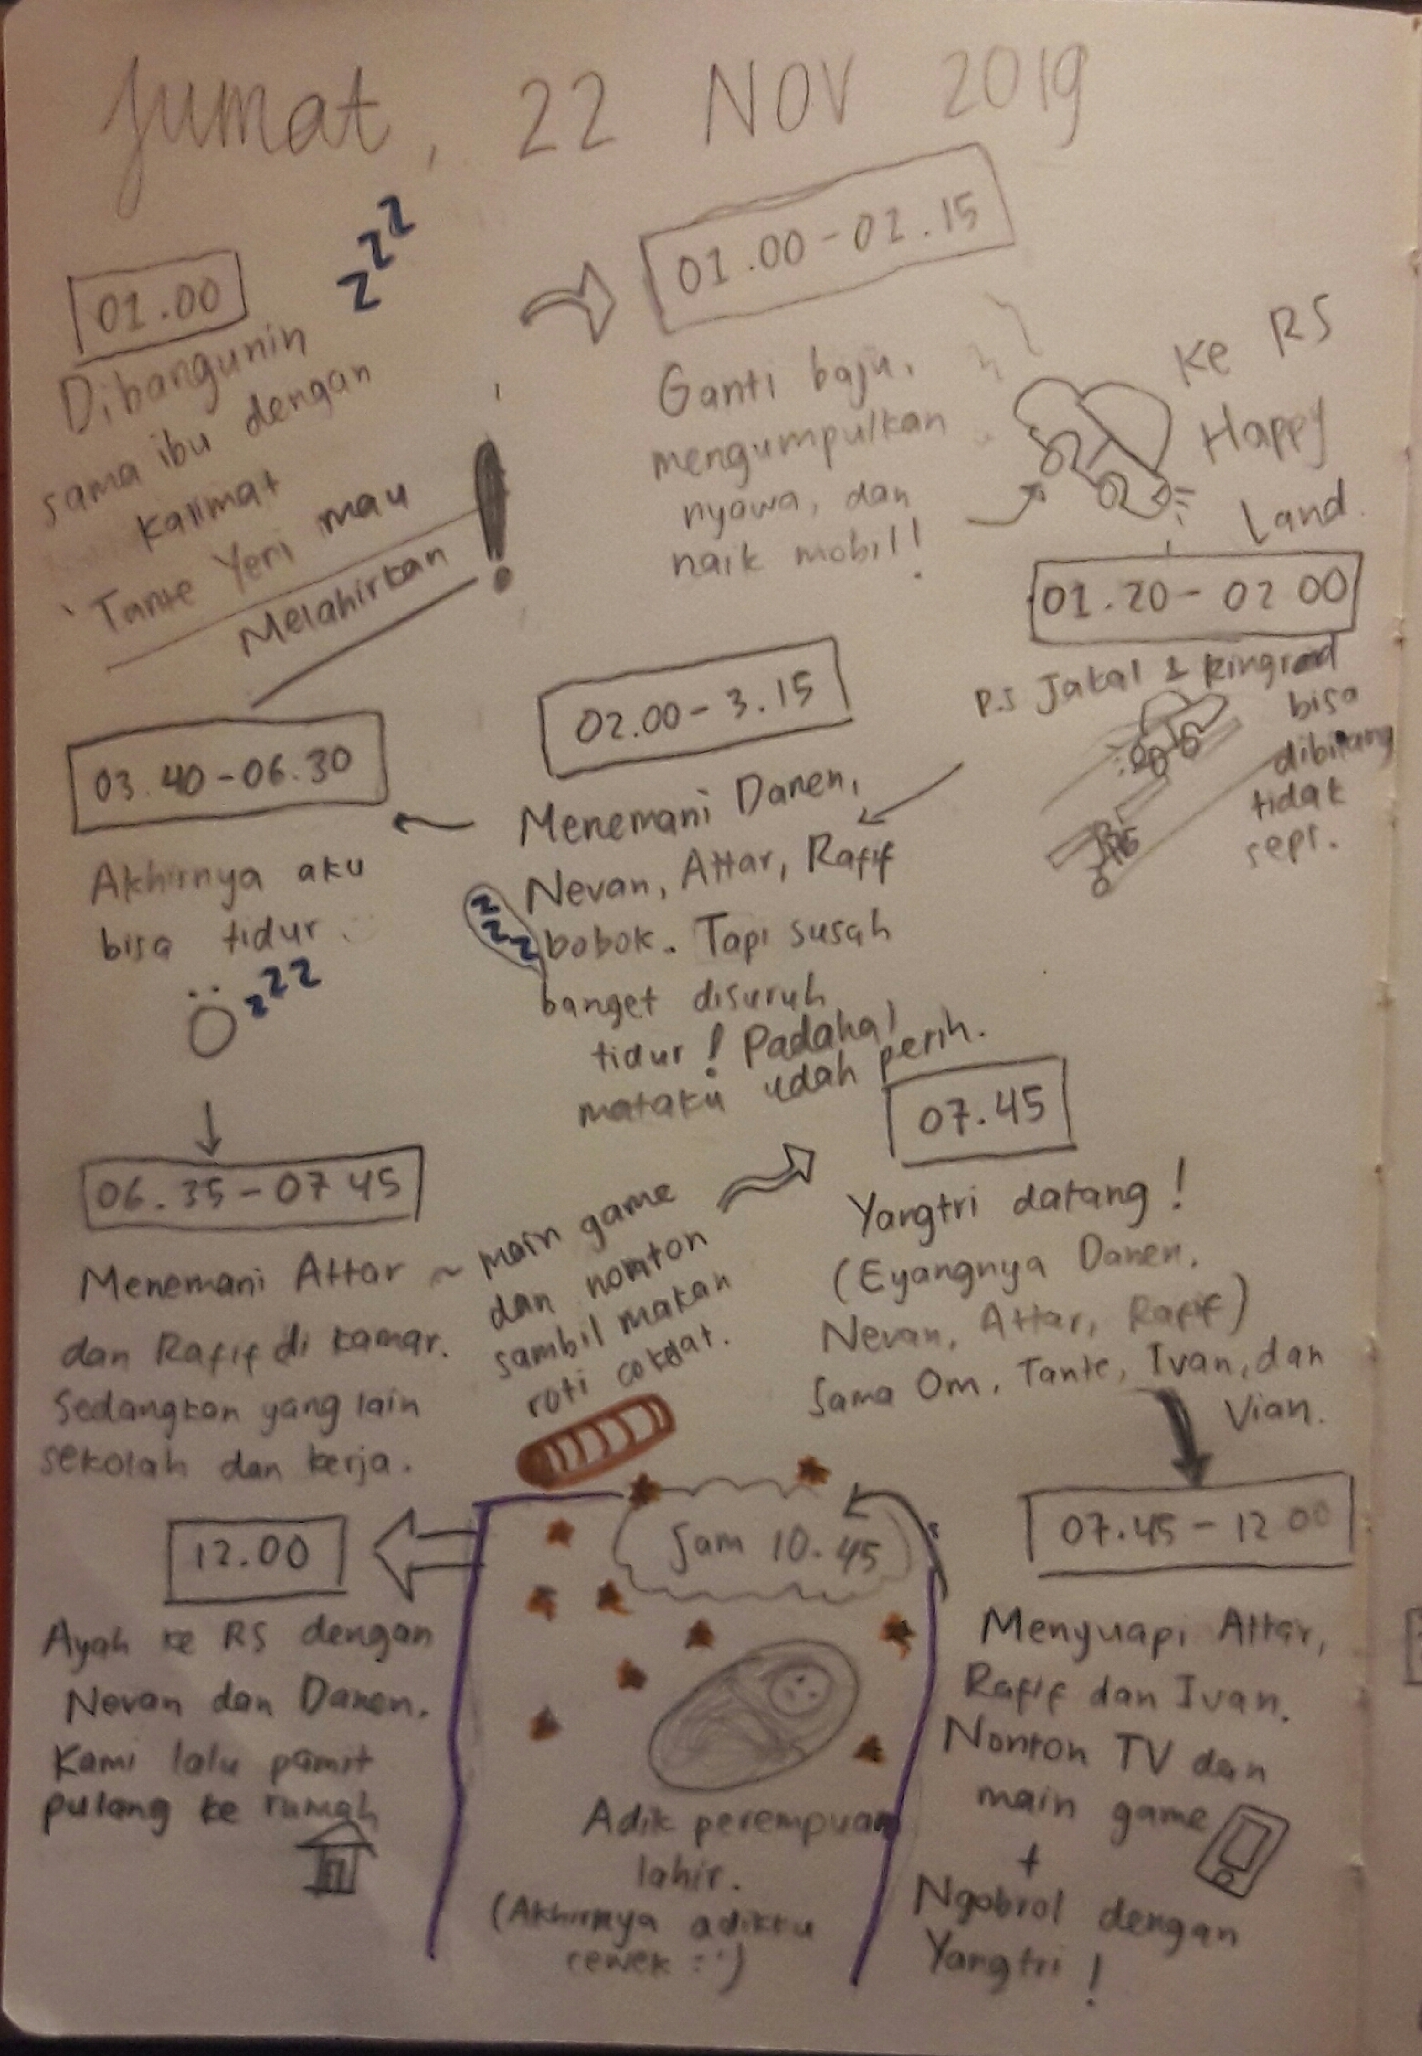 Jumat, 22 NOV 2019
01.00
zzz
Dibangunin
sama ibu dengan
kalimat
'Tante Yeri mau
Melahirkan!
01.00-02.15
Ganti baju,
mengumpulkan
nyawa, dan
naik mobil!
Ke RS
Happy
Land.
01.20-02 00
P.S Jakal & Ringroad
bisa
dibilang
tidak
sepi.
02.00-3.15
Menemani Danen,
Nevan, Attar, Rafif
zzz
bobok. Tapi susah
banget disuruh
tidur! Padahal
mataku udah perih.
03.40-06.30
Akhirnya aku
bisa tidur.
zzz
06.35-07 45
Menemani Attar ~
dan Rafif di kamar.
Sedangkan yang lain
sekolah dan kerja.
main game
dan nonton
sambil makan
roti coklat.
07.45
Yangtri datang!
(Eyangnya Danen,
Nevan, Attar, Rafif)
Sama Om, Tante, Ivan, dan
Vian.
07.45-12 00
Menyuapi Attar,
Rafif dan Ivan.
Nonton TV dan
main game
+
Ngobrol dengan
Yangtri!
Jam 10.45
Adik perempuan
lahir.
(Akhirnya adikku
cewek :')
12.00
Ayah ke RS dengan
Nevan dan Danen.
Kami lalu pamit
pulang ke rumah